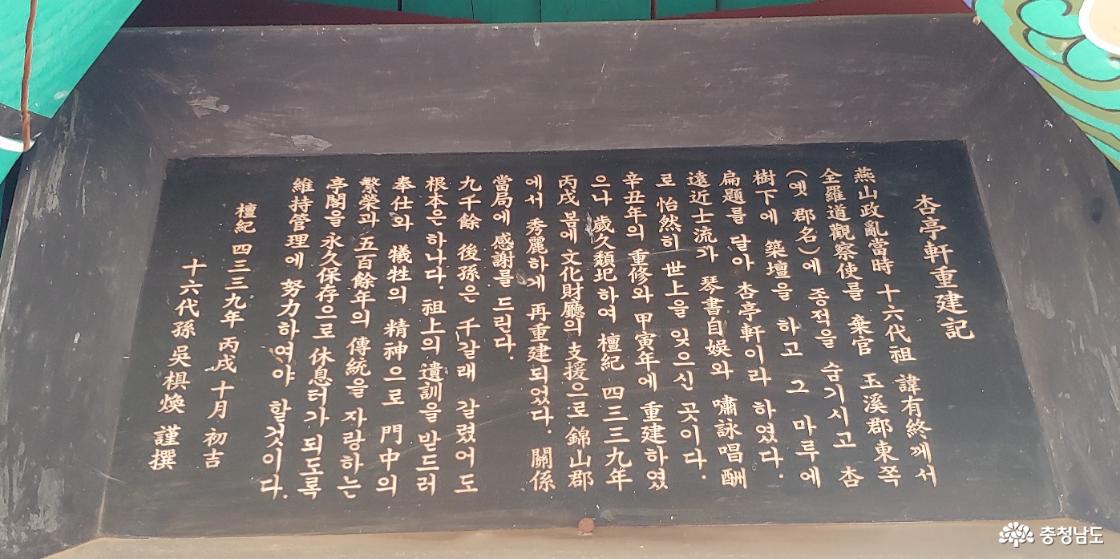 杏亭軒重建記
燕山政亂當時 十六代祖 諱有終께서
全羅道觀察使를 棄官 玉溪郡東쪽
(옛 郡名)에 종적을 숨기시고 杏
樹下에 築壇을 하고 그 마루에
扁題를 달아 杏亭軒이라 하였다.
遠近士流가 琴書自娛와 嘯詠唱酬
로 怡然히 世上을 잊으신 곳이다.
辛丑年의 重修와 甲寅年에 重建하였
으나 歲久頹圮하여 檀紀 四三三九年
丙戌 봄에 文化財廳의 支援으로 錦山郡
에서 秀麗하게 再重建되었다. 關係
當局에 感謝를 드린다.
九千餘 後孫은 千갈래 갈렸어도
根本은 하나다. 祖上의 遺訓을 받드러
奉仕와 犧牲의 精神으로 門中의
繁榮과 五百餘年의 傳統을 자랑하는
亭閣을 永久保存으로 休息터가 되도록
維持管理에 努力하여야 할것이다.
檀紀 四三三九年 丙戌 十月 初吉
十六代孫 吳椇煥 謹撰
충청남도